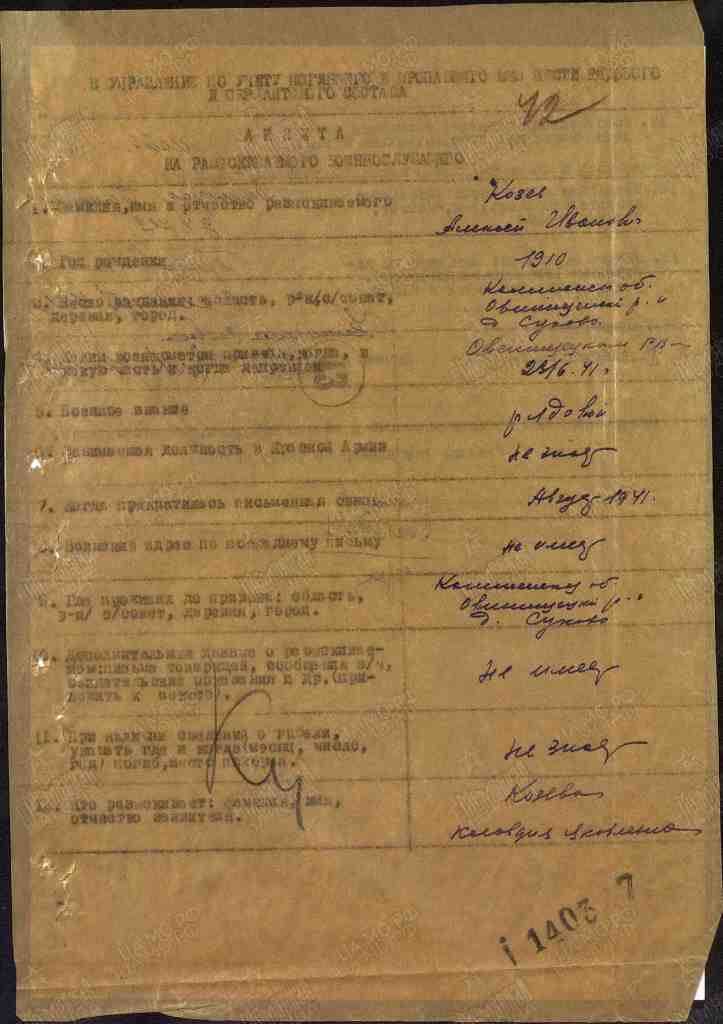 В УПРАВЛЕНИЕ ПО УЧЕТУ ПОГИБШЕГО И ПРОПАВШЕГО БЕЗ ВЕСТИ РЯДОВОГО
И СЕРЖАНТСКОГО СОСТАВА
42
АНКЕТА
НА РАЗЫСКИВАЕМОГО ВОЕННОСЛУЖАЩЕГО
1. Фамилия, имя и отчество разыскиваемого
Козев
Алексей Иванов
Год рождения
1910
Место рождения: область, р-н, с/совет,
деревня, город.
Калининск об.
Овинищский р-н
д. Сухово
Каким военкоматом призван, когда, в
какую часть и когда направлен
Овинищским РВ
23/6.41г.
5. Военное звание
рядовой
6. Занимаемая должность в Красной Армии
не знает
7. Когда прекратилась письменная связь
Август 1941.
8. Воинский адрес по последнему письму
не имеет
9. Где проживал до призыва: область,
р-н/ с/совет, деревня, город.
Калининск об.
Овинищский р-н
д. Сухово
10. Дополнительные данные о разыскивае-
мом: письма товарищей, сообщения в/ч,
свидетельские показания и др. (при-
ложить к анкете).
Не имеет
11. При наличии сведений о гибели,
указать где и когда (месяц, число,
год) погиб, место похорон.
не знает
12. Кто разыскивает: фамилия, имя,
отчество заявителя.
Козева
Клавдия Яковлевна
1403 7